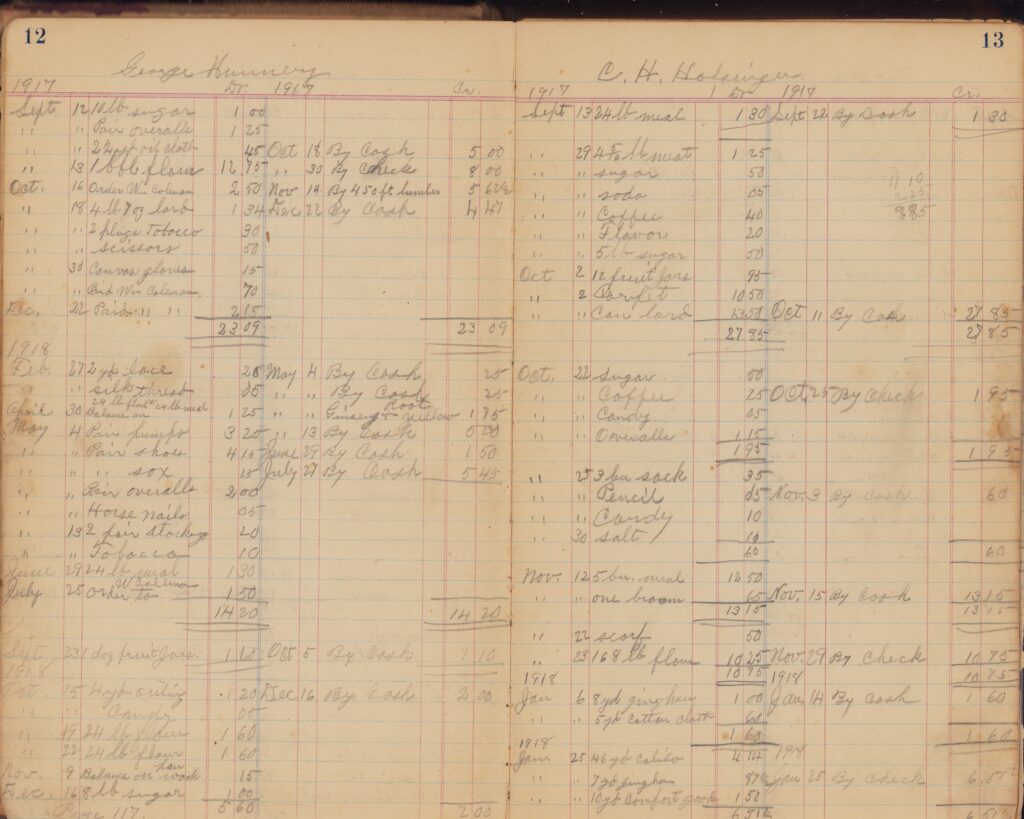 12
George Nunnery
1917 Dr. 1917 Cr.
Sept 12 10 lb sugar 1 00
" " Pair overalls 1 25
" " 2 1/4 yd oil cloth 45 Oct 18 By Cash 5 00
" 13 1 bbl flour 12 75 " 30 By Check 8 00
Oct. 16 Order Wm Coleman 2 50 Nov 19 By 450 ft lumber 5 62½
" 18 4 lb 7 oz lard 1 34 Dec 22 By Cash 4 47
" " 2 plugs Tobacco 30
" " scissors 50
" 30 Canvas gloves 15
" " Paid Wm Coleman. 70
Dec. 22 Paid " " 2 15
23 09 23 09
1918
Feb. 27 2 yd lace 20 May 4 By Cash 25
" " silk thread 05 " " By Cash 25
April 30 24 lb flour 24 lb meal Balance on 1 25 " " Ginseng & yellow Root 1 75
May 4 Pair pumps 3 25 " 13 By Cash 5 00
" " Pair shoes 4 15 June 29 By Cash 1 50
" " " sox 15 July 27 By Cash 5 45
" " Pair overalls 2 00
" " Horse Nails 05
" 13 2 pair stockings 20
" " Tobacco 10
June 29 24 lb meal 1 30
July 25 Order to W Coleman 1 50
14 20 14 20
Sept 23 1 doz fruit Jars. 1 10 Oct 5 By Cash 1 10
1918
Oct 15 4 yd outing 1 20 Dec 16 By Cash 2 00
" " Candy 05
" 19 24 lb flour 1 60
" 22 24 lb flour 1 60
Nov. 9 Balance on 15
Dec. 16 8 lb sugar 1 00
Page 117. 5 60 2 00
13
C. H. Holsinger
1917 Dr 1917 Cr.
Sept 13 24 lb meal 1 30 Sept 22 By Cash 1 30
" 29 lb meat 1 25
" " sugar 50
" " soda 05
" " Coffee 40
" " Flavor 20
" " 5 lb sugar 50
11 10
2 25
8 85
Oct 2 12 fruit Jars 95
" 2 Carpet 10 50
" " Can lard 13 50 Oct 11 By Cash 27 85
27 85 27 85
Oct. 22 sugar 50
" " Coffee 25 Oct 25 By Check 1 95
" " Candy 05
" " Overalls 1 15
1 95 1 95
" 25 3 bu sack 35
" " Pencil 05 Nov. 3 By Cash 60
" " Candy 10
" 30 salt 10
60 60
Nov. 12 5 bu. meal 12 50
" " one broom 65 Nov. 15 By Cash 13 15
13 15 13 15
" 22 scarf 50
" 23 168 lb flour 10 25 Nov. 29 By Check 10 75
1918 10 75 1918 10 75
Jan 6 8 yd gingham 1 00 Jan 14 By Cash 1 60
" " 5 yd Cotton Cloth 60
1 60 1 60
1918 1918
Jan. 25 46 yd Calico 4 14
" " 7 yd gingham 87½ Jan 25 By Check 6 51½
" " 10 yd Comfort goods 1 50
6 51½ 6 51½